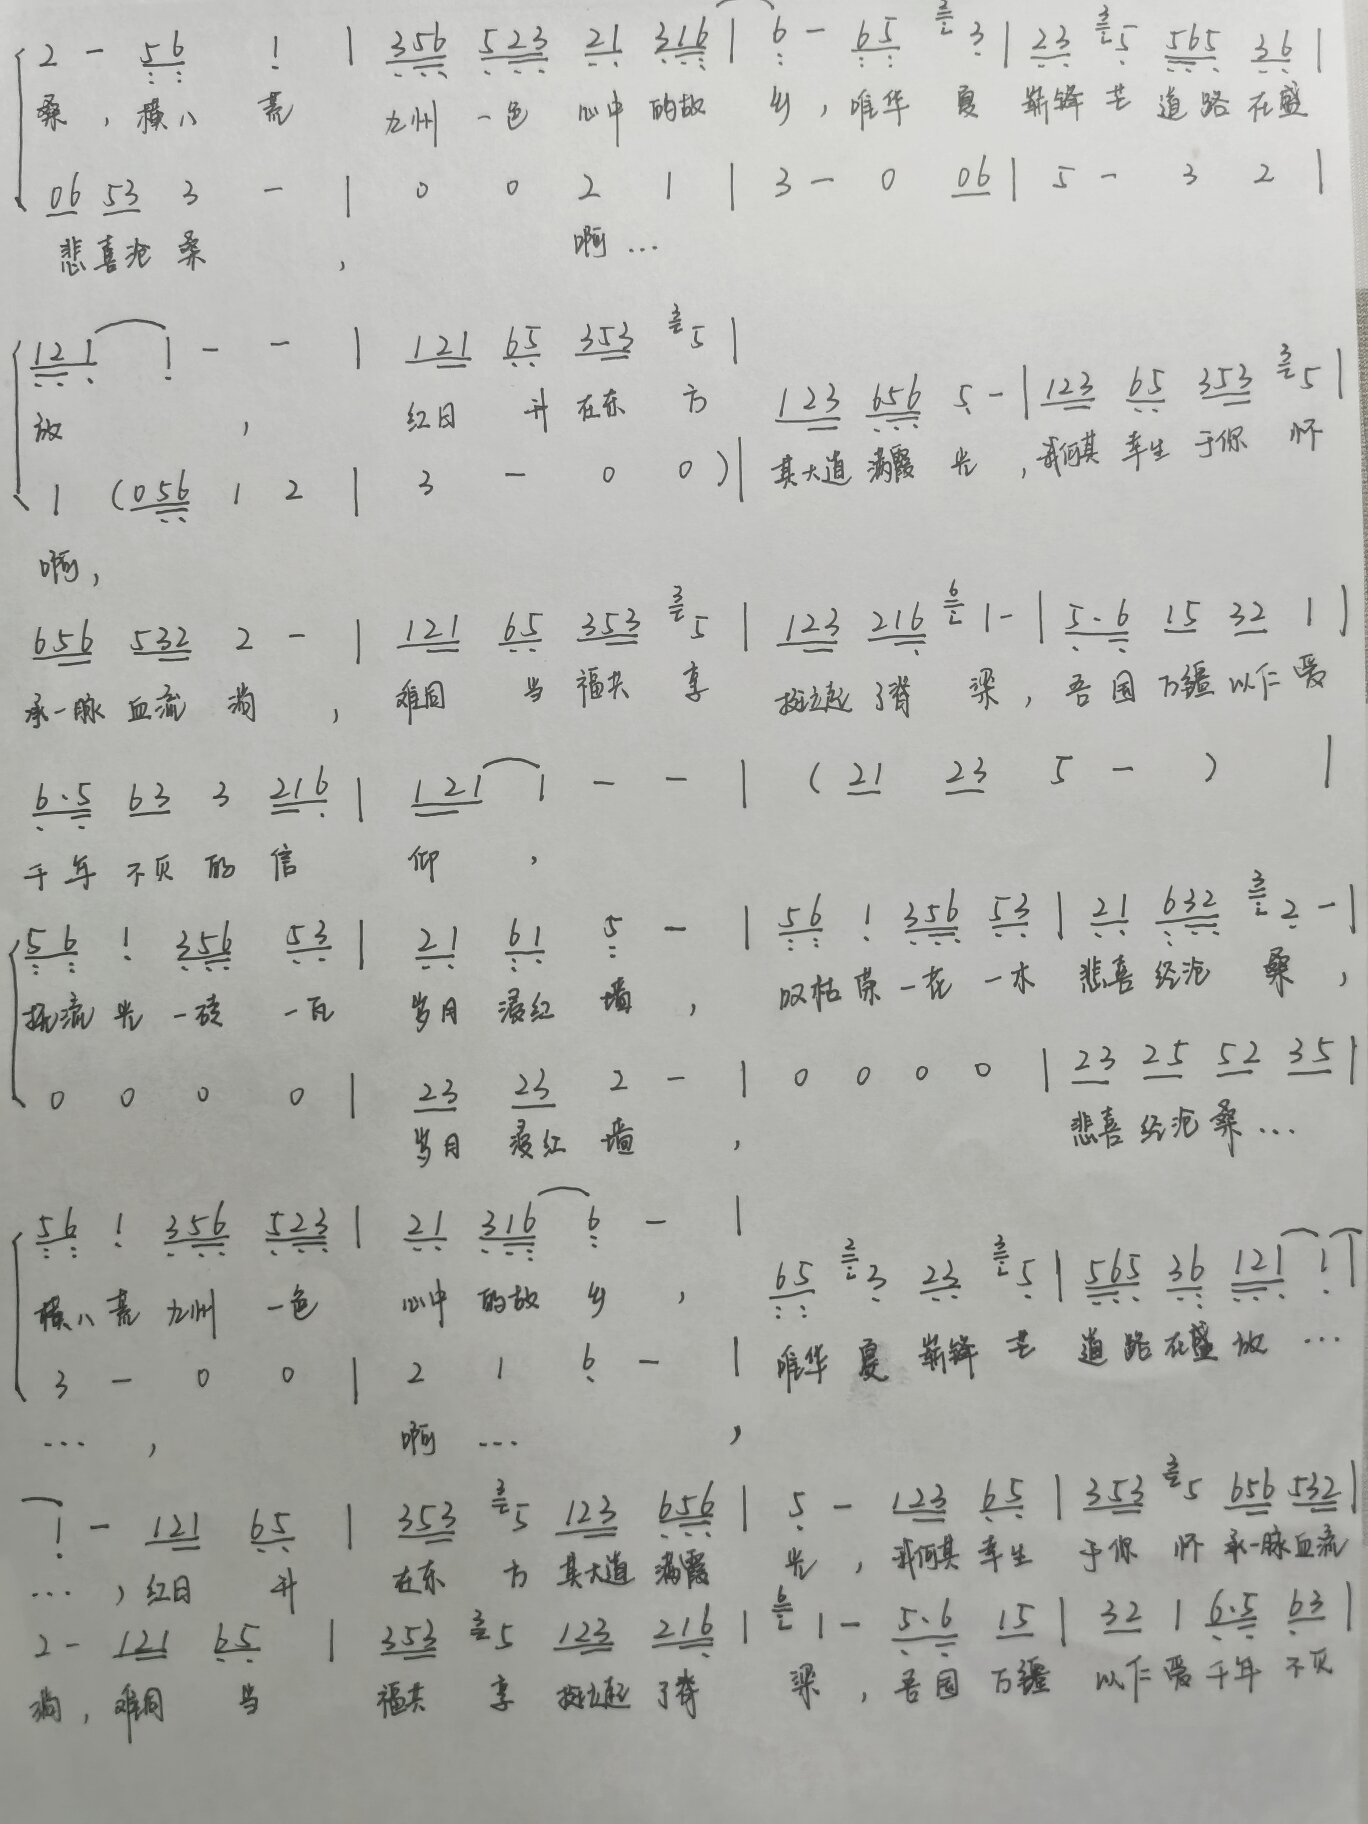 2 - 56 1 | 356 523 21 316 | 6 - 65 3 | 23 5 565 36 |
桑，横八荒 九州一色 心中的故乡，唯华夏崭锋芒 道路在盛
06 53 3 - | 0 0 2 1 | 3 - 0 06 | 5 - 3 2 |
悲喜沧桑， 啊…
121 1 - - | 121 65 353 5 |
123 656 5 - | 123 65 353 5 |
放， 红日升在东方
其大道满霞光，我何其幸生于你怀
1 (056 1 2 | 3 - 0 0 ) |
啊，
656 532 2 - | 121 65 353 5 | 123 216 1 - | 5·6 15 32 1 |
承一脉血流淌， 难同当福共享 挺立起了脊梁，吾国万疆以仁爱
6·5 63 3 216 | 121 1 - - | ( 21 23 5 - ) |
千年不灭的信仰，
56 1 356 53 | 21 61 5 - | 56 1 356 53 | 21 632 2 - |
抚流光一砖一瓦 岁月浸红墙， 叹枯荣一花一木 悲喜经沧桑，
0 0 0 0 | 23 23 2 - | 0 0 0 0 | 23 25 52 35 |
岁月浸红墙， 悲喜经沧桑…
56 1 356 523 | 21 316 6 - |
65 3 23 5 | 565 36 121 1 |
横八荒九州一色 心中的故乡，
唯华夏崭锋芒 道路在盛放…
3 - 0 0 | 2 1 6 - |
…， 啊…，
1 - 121 65 | 353 5 123 656 | 5 - 123 65 | 353 5 656 532 |
…，红日升 在东方其大道满霞光，我何其幸生于你怀承一脉血流
2 - 121 65 | 353 5 123 216 | 1 - 5·6 15 | 32 1 6·5 63 |
淌，难同当 福共享挺立起了脊梁，吾国万疆以仁爱千年不灭